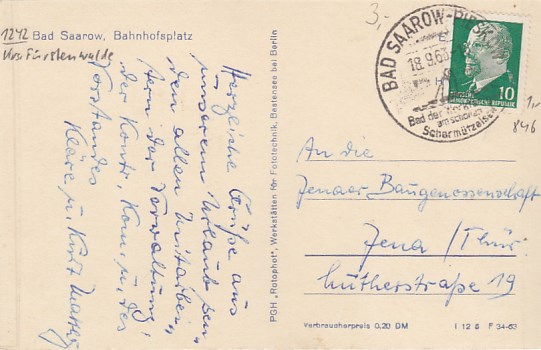 1242 Bad Saarow, Bahnhofsplatz
Krs. Fürstenwalde
Herzliche Grüße aus
unserem Urlaub sen-
den allen Mitarbei-
tern der Verwaltung,
der Kontr. Kom. u. des
Vorstandes
Kläre u. Kurt
PGH „Rotophot“, Werkstätten für Fototechnik, Bestensee bei Berlin
3,-
BAD SAAROW-PIESK
18.9.63
Bad der
am schönen
Scharmützelsee
10
DEUTSCHE DEMOKRATISCHE REPUBLIK
1,-
846
An die
Jenaer Baugenossenschaft
Jena / Thür.
Lutherstraße 19
Verbraucherpreis 0,20 DM
I 12 8 F 34-63